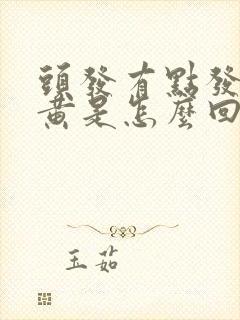 頭發有點發
黃是怎麼回
玉茹